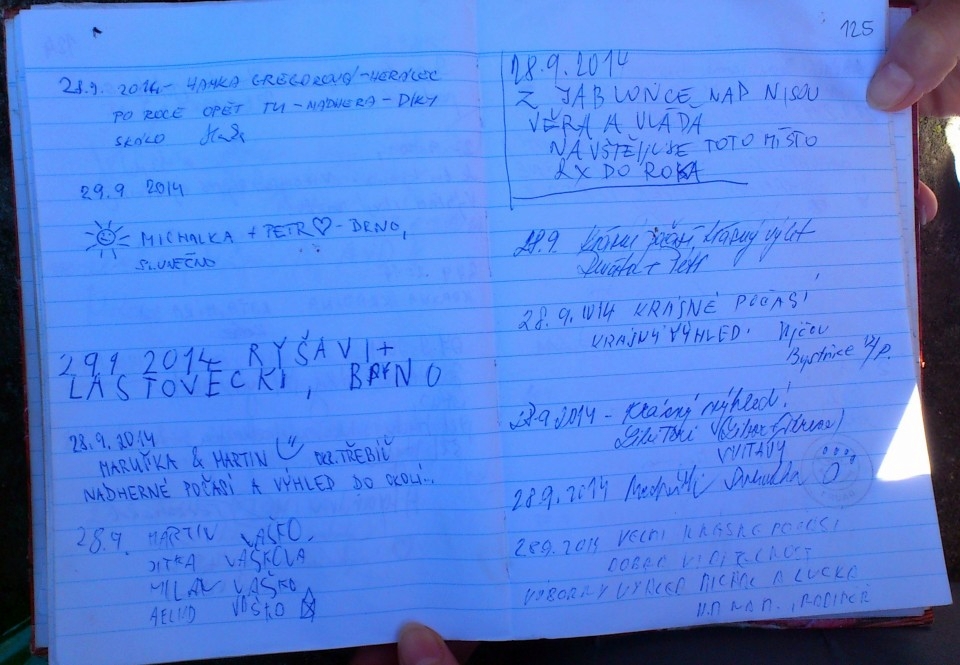 28.9. 2014 - HANKA GREGOROVÁ - HERÁLEC
PO ROCE OPĚT TU - NÁDHERA - DÍKY
29.9 2014
MICHALKA + PETR ♡ - BRNO,
SLUNEČNO
29.9 2014 RYŠAVÍ +
LASTOVEČKI, BRNO
28.9.2014
MARUŠKA & MARTIN TŘEBÍČ
NÁDHERNÉ POČASÍ A VÝHLED DO OKOLÍ..
28.9. MARTIN VAŠKO
JITKA
MILAN VAŠKO
VAŠKO
125
28.9.2014
Z JABLONCE NAD NISOU
VĚRA A VLÁĎA
NAVŠTĚVUJE TOTO MÍSTO
2X DO ROKA
28.9. Krásné počasí krásný výlet
28.9.2014 KRÁSNÉ POČASÍ
KRÁSNÝ VÝHLED.
Bystřice n/P.
28.9.2014 - Krásný výhled!
SVITAVY
28.9.2014
28.9.2014 VELMI KRÁSNÉ POČASÍ
DOBRÁ VIDITELNOST
VÝBORNÝ VÝHLED MICHAL A LUCKA